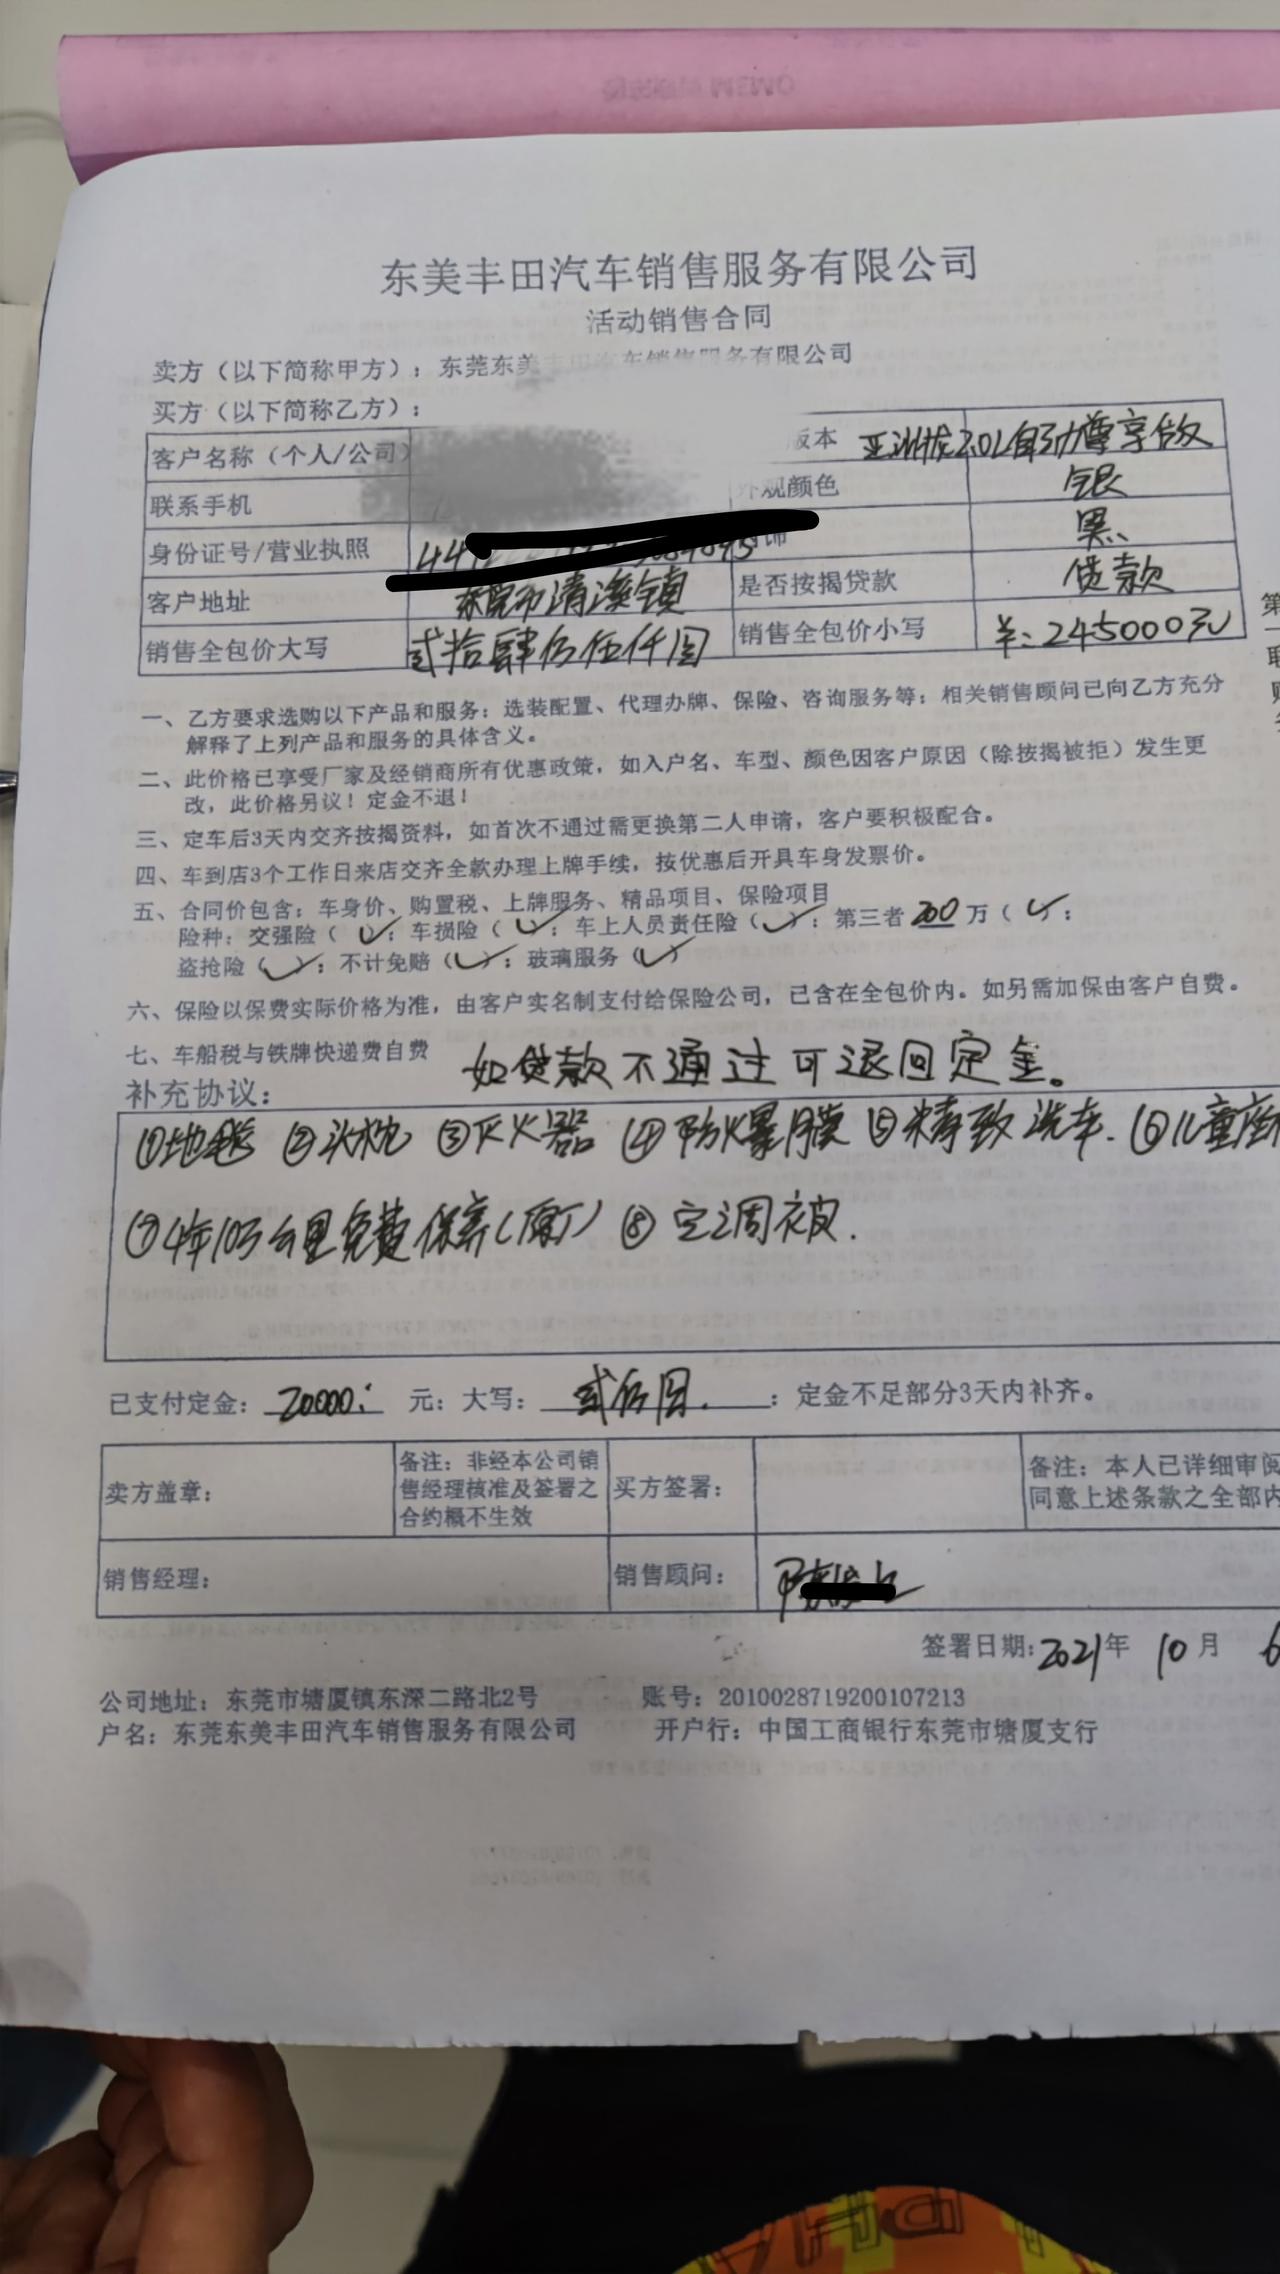 东美丰田汽车销售服务有限公司
活动销售合同
卖方（以下简称甲方）：东莞东美丰田汽车销售服务有限公司
买方（以下简称乙方）：
客户名称（个人/公司） 版本 亚洲龙2.0L自动尊享版
联系手机 外观颜色 银
身份证号/营业执照 饰 黑
客户地址 东莞市清溪镇 是否按揭贷款 贷款
销售全包价大写 贰拾肆万伍仟圆 销售全包价小写 ￥：245000元
一、乙方要求选购以下产品和服务：选装配置、代理办牌、保险、咨询服务等；相关销售顾问已向乙方充分
解释了上列产品和服务的具体含义。
二、此价格已享受厂家及经销商所有优惠政策，如入户名、车型、颜色因客户原因（除按揭被拒）发生更
改，此价格另议！定金不退！
三、定车后3天内交齐按揭资料，如首次不通过需更换第二人申请，客户要积极配合。
四、车到店3个工作日来店交齐全款办理上牌手续，按优惠后开具车身发票价。
五、合同价包含：车身价、购置税、上牌服务、精品项目、保险项目
险种：交强险（✓）；车损险（✓）；车上人员责任险（✓）；第三者200万（✓）；
盗抢险（✓）；不计免赔（✓）；玻璃服务（✓）
六、保险以保费实际价格为准，由客户实名制支付给保险公司，已含在全包价内。如另需加保由客户自费。
七、车船税与铁牌快递费自费 如贷款不通过可退回定金。
补充协议：
①地毯 ②头枕 ③灭火器 ④防爆膜 ⑤精致洗车. ⑥儿童座
⑦4年10万公里免费保养(原厂) ⑧空调被.
已支付定金：20000： 元：大写：贰万圆. ；定金不足部分3天内补齐。
卖方盖章： 备注：非经本公司销售经理核准及签署之合约概不生效 买方签署： 备注：本人已详细审阅
同意上述条款之全部内
销售经理： 销售顾问： 陈
签署日期：2021年 10月 6
公司地址：东莞市塘厦镇东深二路北2号 账号：2010028719200107213
户名：东莞东美丰田汽车销售服务有限公司 开户行：中国工商银行东莞市塘厦支行
第
一
联